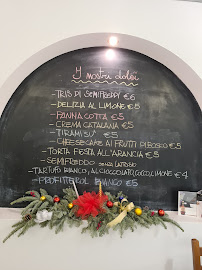 I nostri dolci
- TRIS DI SEMIFREDDI €6
- DELIZIA AL LIMONE €5
- PANNA COTTA €5
- CREMA CATALANA €5
- TIRAMISU' €5
- CHEESECAKE AI FRUTTI DI BOSCO €5
- TORTA FIESTA ALL'ARANCIA €5
- SEMIFREDDO SENZA LATTOSIO
- TARTUFO BIANCO, AL CIOCCOLATO, COCCO, LIMONE €4
- PROFITEROL BIANCO €5